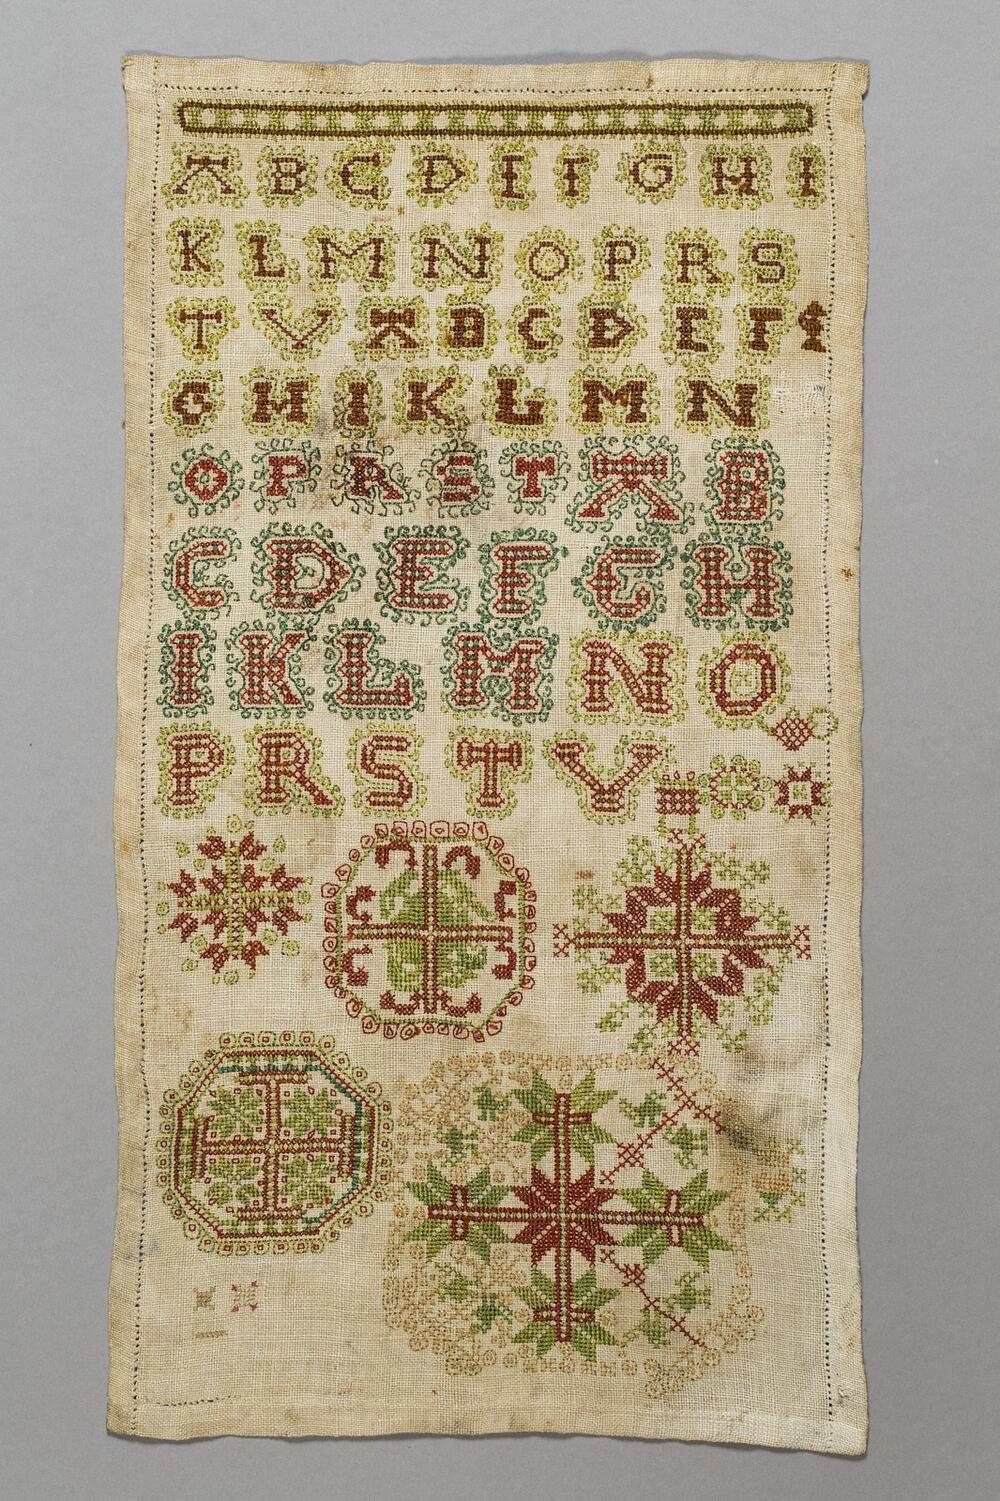 A B C D E F G H I
K L M N O P R S
T V A B C D E F
G H I K L M N
O P R S T A B
C D E F G H
I K L M N O
P R S T V